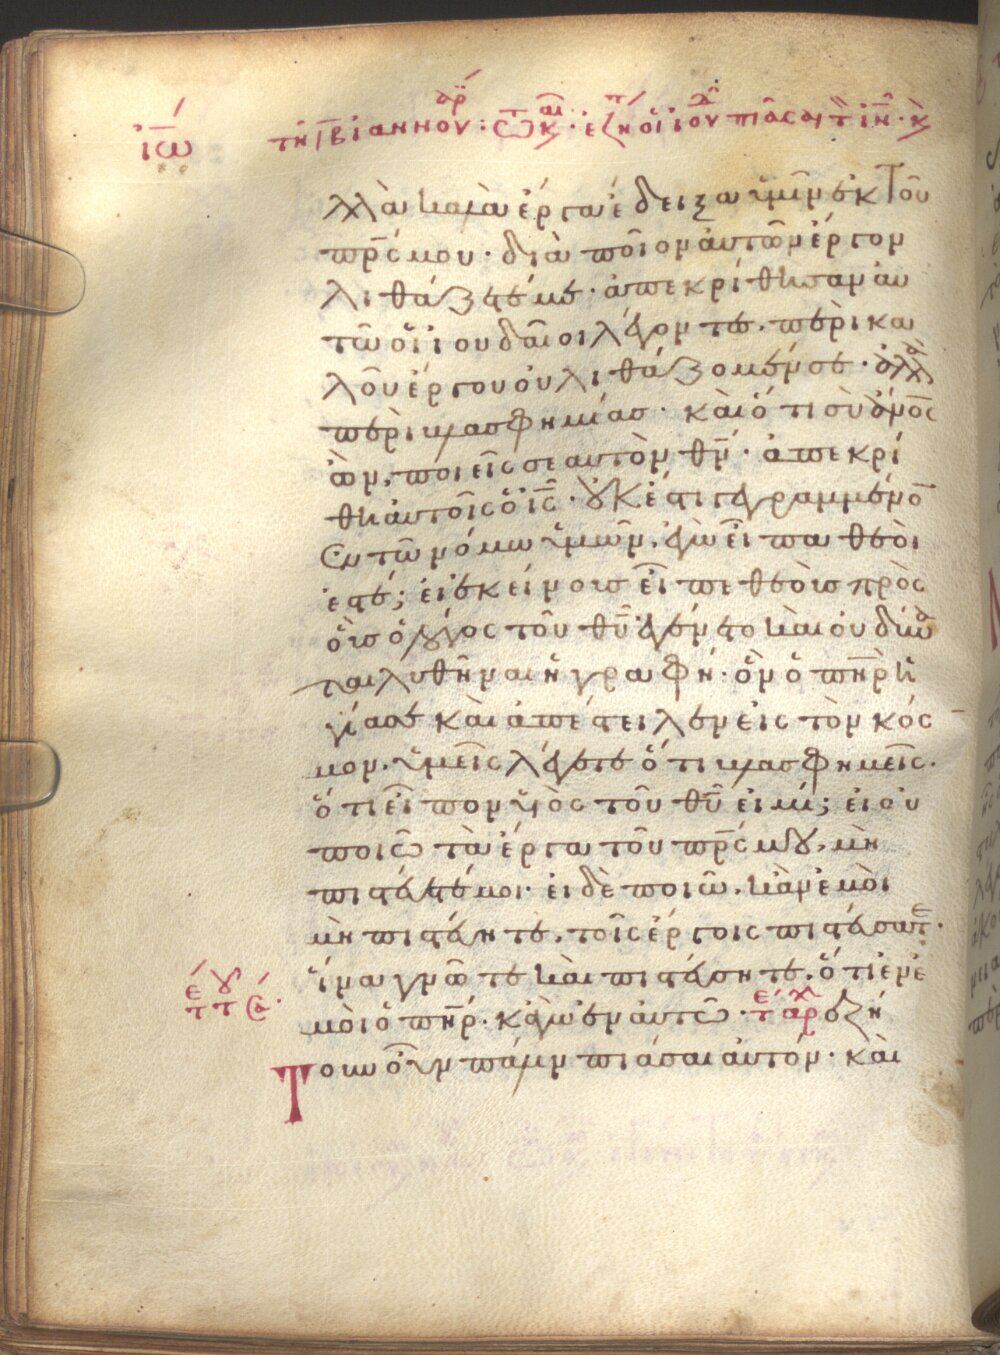 ιω
λλὰ καλὰ ἔργα ἔδειξα ὑμῖν ἐκ τοῦ
πρς μου· διὰ ποῖον αὐτῶν ἔργον
λιθάζετέ με· ἀπεκρίθησαν αυ
τῶ οἱ ἰουδαῖοι λέγοντες· περὶ κα
λοῦ ἔργου οὐ λιθάζομέν σε· ἀλλὰ
περὶ βλασφημίας· καὶ ὅτι σὺ ἄνος
ὢν, ποιεῖς σεαυτὸν θν· ἀπεκρί
θη αὐτοῖς ὁ ις· οὐκ ἔστι γεγραμμένον
ἐν τῶ νόμω ὑμῶν, ἐγὼ εἶπα θεοί
ἐστέ; εἰ ἐκείνους εἶπε θεοὺς πρὸς
οὓς ὁ λόγος τοῦ θυ ἐγένετο καὶ οὐ δύνα
ται λυθῆναι ἡ γραφή· ὃν ὁ πηρ ἡ
γίασε καὶ ἀπέστειλεν εἰς τὸν κόσ
μον, ὑμεῖς λέγετε ὅτι βλασφημεῖς·
ὅτι εἶπον υἱὸς τοῦ θυ εἰμί; εἰ οὐ
ποιῶ τὰ ἔργα τοῦ πρς μου, μὴ
πιστεύετέ μοι· εἰ δὲ ποιῶ, κἂν ἐμοὶ
μὴ πιστεύητε, τοῖς ἔργοις πιστεύσατε·
ἵνα γνῶτε καὶ πιστεύσητε, ὅτι ἐν ἐ
μοὶ ὁ πηρ· κἀγὼ ἐν αὐτῶ· ἐζή
Τουν οὖν πάλιν πιάσαι αὐτόν· καὶ